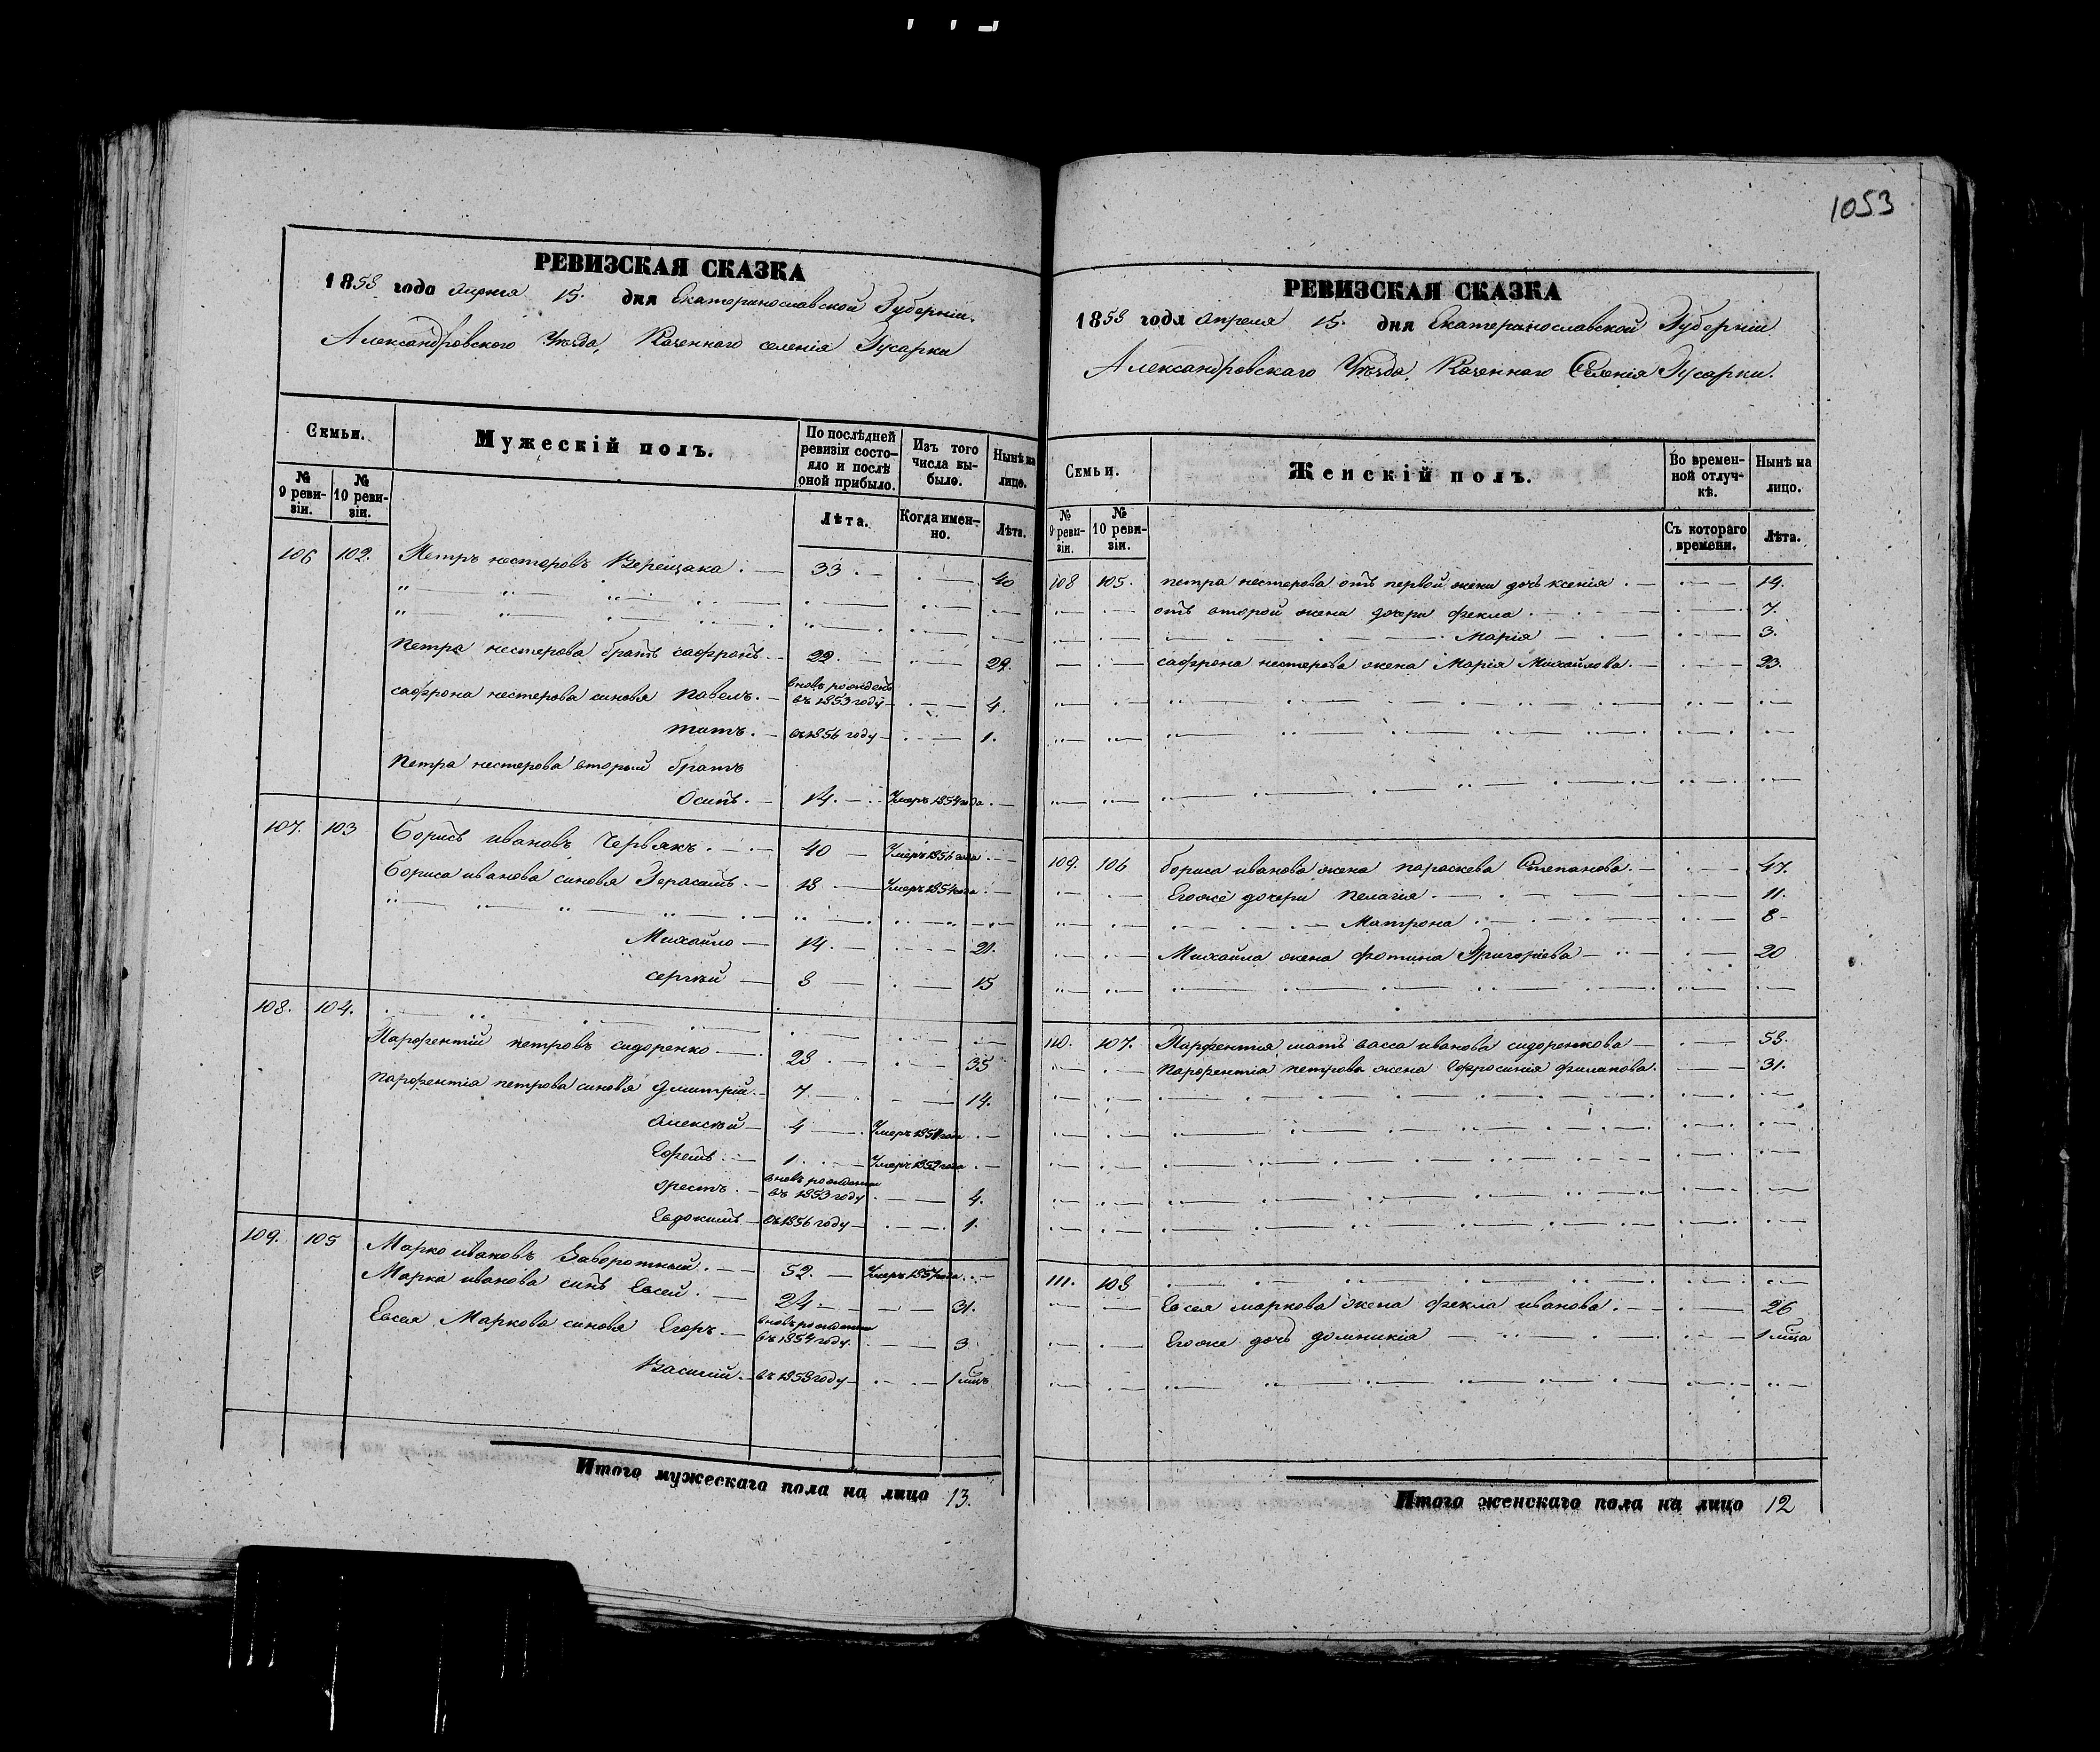 1053
РЕВИЗСКАЯ СКАЗКА
1858 года апреля 15. дня Екатеринославской Губерніи.
Александровского Уѣзда, Казеннаго селенія Гусарки
Семьи.
Мужескій полъ.
По послѣдней ревизіи состояло и послѣ оной прибыло.
Изъ того числа выбыло.
Нынѣ на лицо.
№ 9 ревизіи.
№ 10 ревизіи.
Лѣта.
Когда именно.
Лѣта.
106 102. Петръ нестеровъ Верещака. 33. 40
Петра нестерова братъ сафронъ. 22. 29.
сафрона нестерова синовя Павелъ. вновь рожденъ въ 1853 году 4.
титъ. въ 1856 году 1.
Петра нестерова вторый братъ
Осипъ. 14. Умеръ 1854 года
107. 103 Борисъ ивановъ Червякъ. 40 Умеръ 1856 года
Бориса иванова синовя Герасимъ. 18 Умеръ 1854 года
Михайло 14. 21.
сергѣй 8 15
108. 104.
Парфентій петровъ сидоренко 28 35
Парфентія петрова синовя дмитрій. 7 14.
Алексѣй 4 Умеръ 1851 года
Ефимъ. 1. Умеръ 1852 года
орестъ. вновь рожденъ въ 1853 году 4.
Евдокимъ въ 1856 году 1.
109. 105 Марко ивановъ Заворотный. 52. Умеръ 1857 года
Марка иванова синъ Евсей. 24. 31.
Евсея Маркова синовя Егоръ. вновь рожденъ въ 1854 году. 3
Василий. въ 1858 году 1 мѣц
Итого мужескаго пола на лицо 13.
РЕВИЗСКАЯ СКАЗКА
1858 года апреля 15. дня Екатеринославской Губерніи
Александровскаго Уѣзда, Казеннаго Селенія Гусарки.
Семьи.
Женскій полъ.
Во временной отлучкѣ.
Нынѣ на лицо.
№ 9 ревизіи.
№ 10 ревизіи.
Съ котораго времени.
Лѣта.
108 105. петра нестерова отъ первой жени дочъ ксенія. 14.
отъ второй жени дочери фекла. 7.
Марія 3.
сафрона нестерова жена Марія Михайлова. 23.
109. 106 бориса иванова жена параскева Степанова. 47.
Егоже дочери пелагія. 11.
Матрона 8
Михайла жена фотина Григоріева 20
110. 107. Парфентия мать васса иванова сидоренкова 58.
Парфентіа петрова жена Ефросинія филапова. 31.
111. 108
Евсея маркова жена фекла иванова. 26
Егоже дочь домникія 1 мѣца
Итого женскаго пола на лицо 12